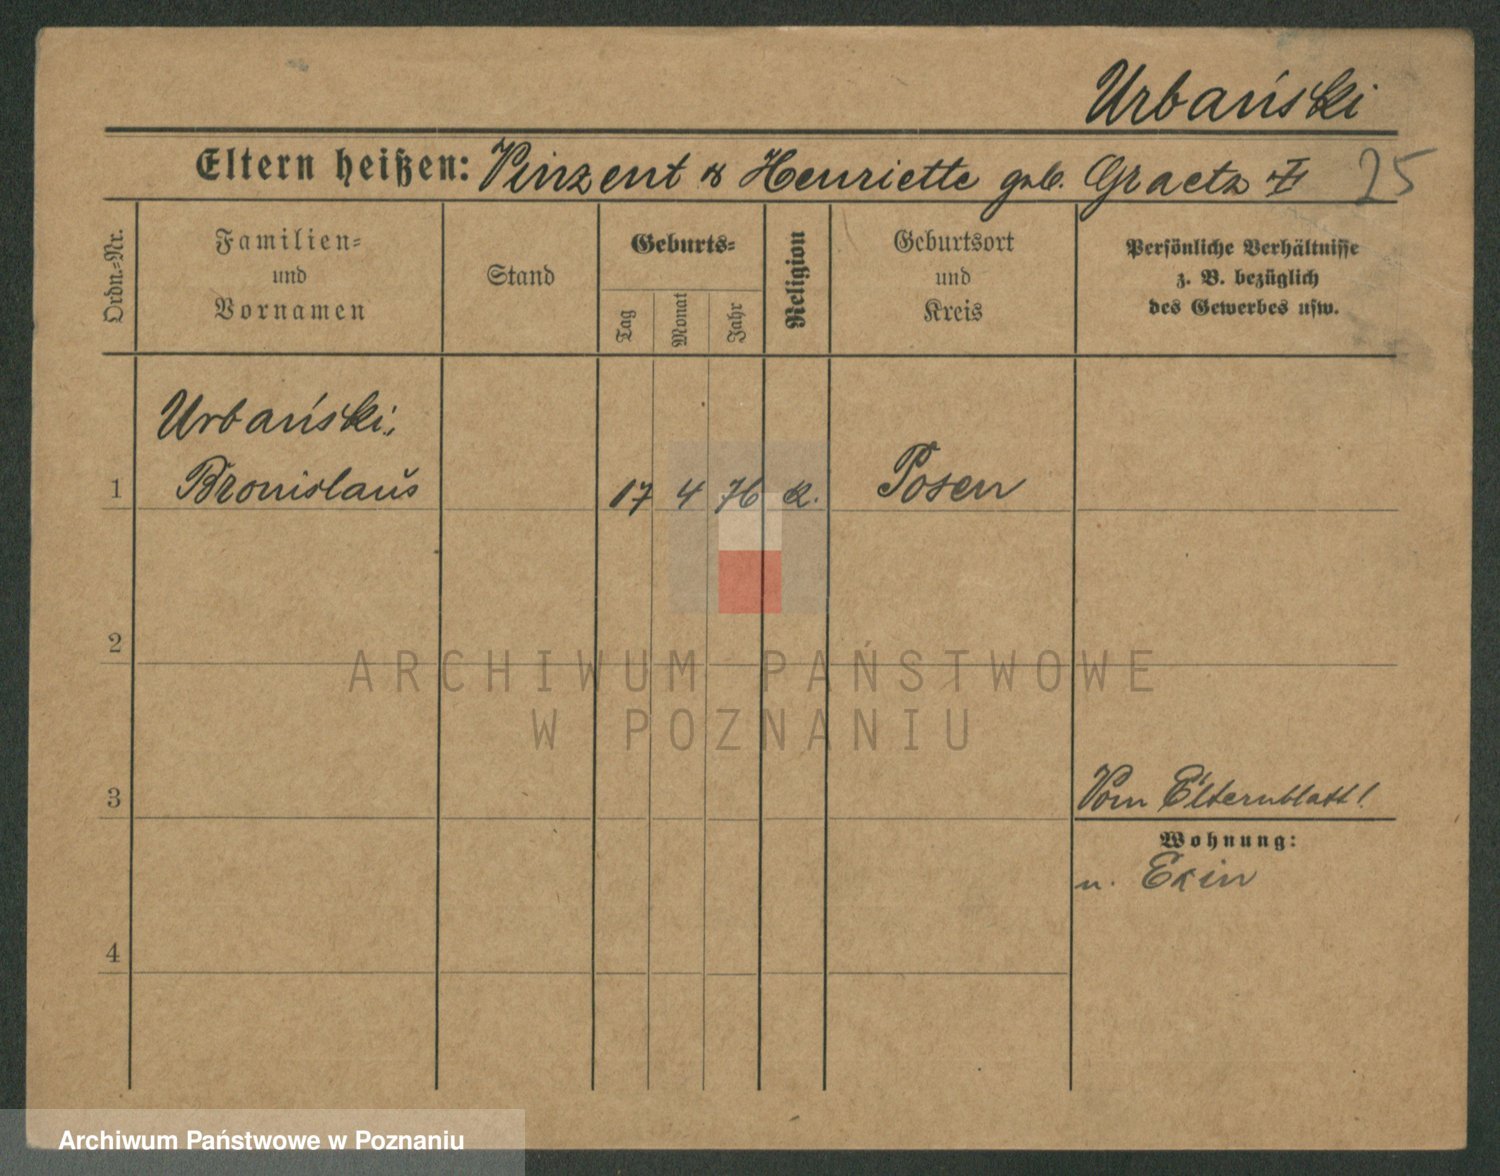 Urbański
Eltern heißen: Vinzent & Henriette geb. Graetz
25
Ordn.=Nr.
Familien=
und
Vornamen
Stand
Geburts=
Tag
Monat
Jahr
Religion
Geburtsort
und
Kreis
Persönliche Verhältnisse
z. B. bezüglich
des Gewerbes usw.
Urbański,
1 Bronislaus 17 4 76 k. Posen
2
ARCHIWUM PAŃSTWOWE
W POZNANIU
3
Vom Elternblatt!
Wohnung:
n. Exin
4
Archiwum Państwowe w Poznaniu